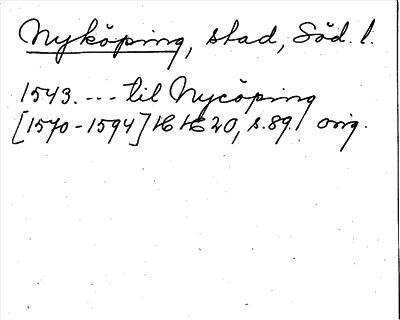 Nyköping, stad, Söd. l.
1543. --- til Nycöping
[1570-1594] HH 20, s. 89. orig.